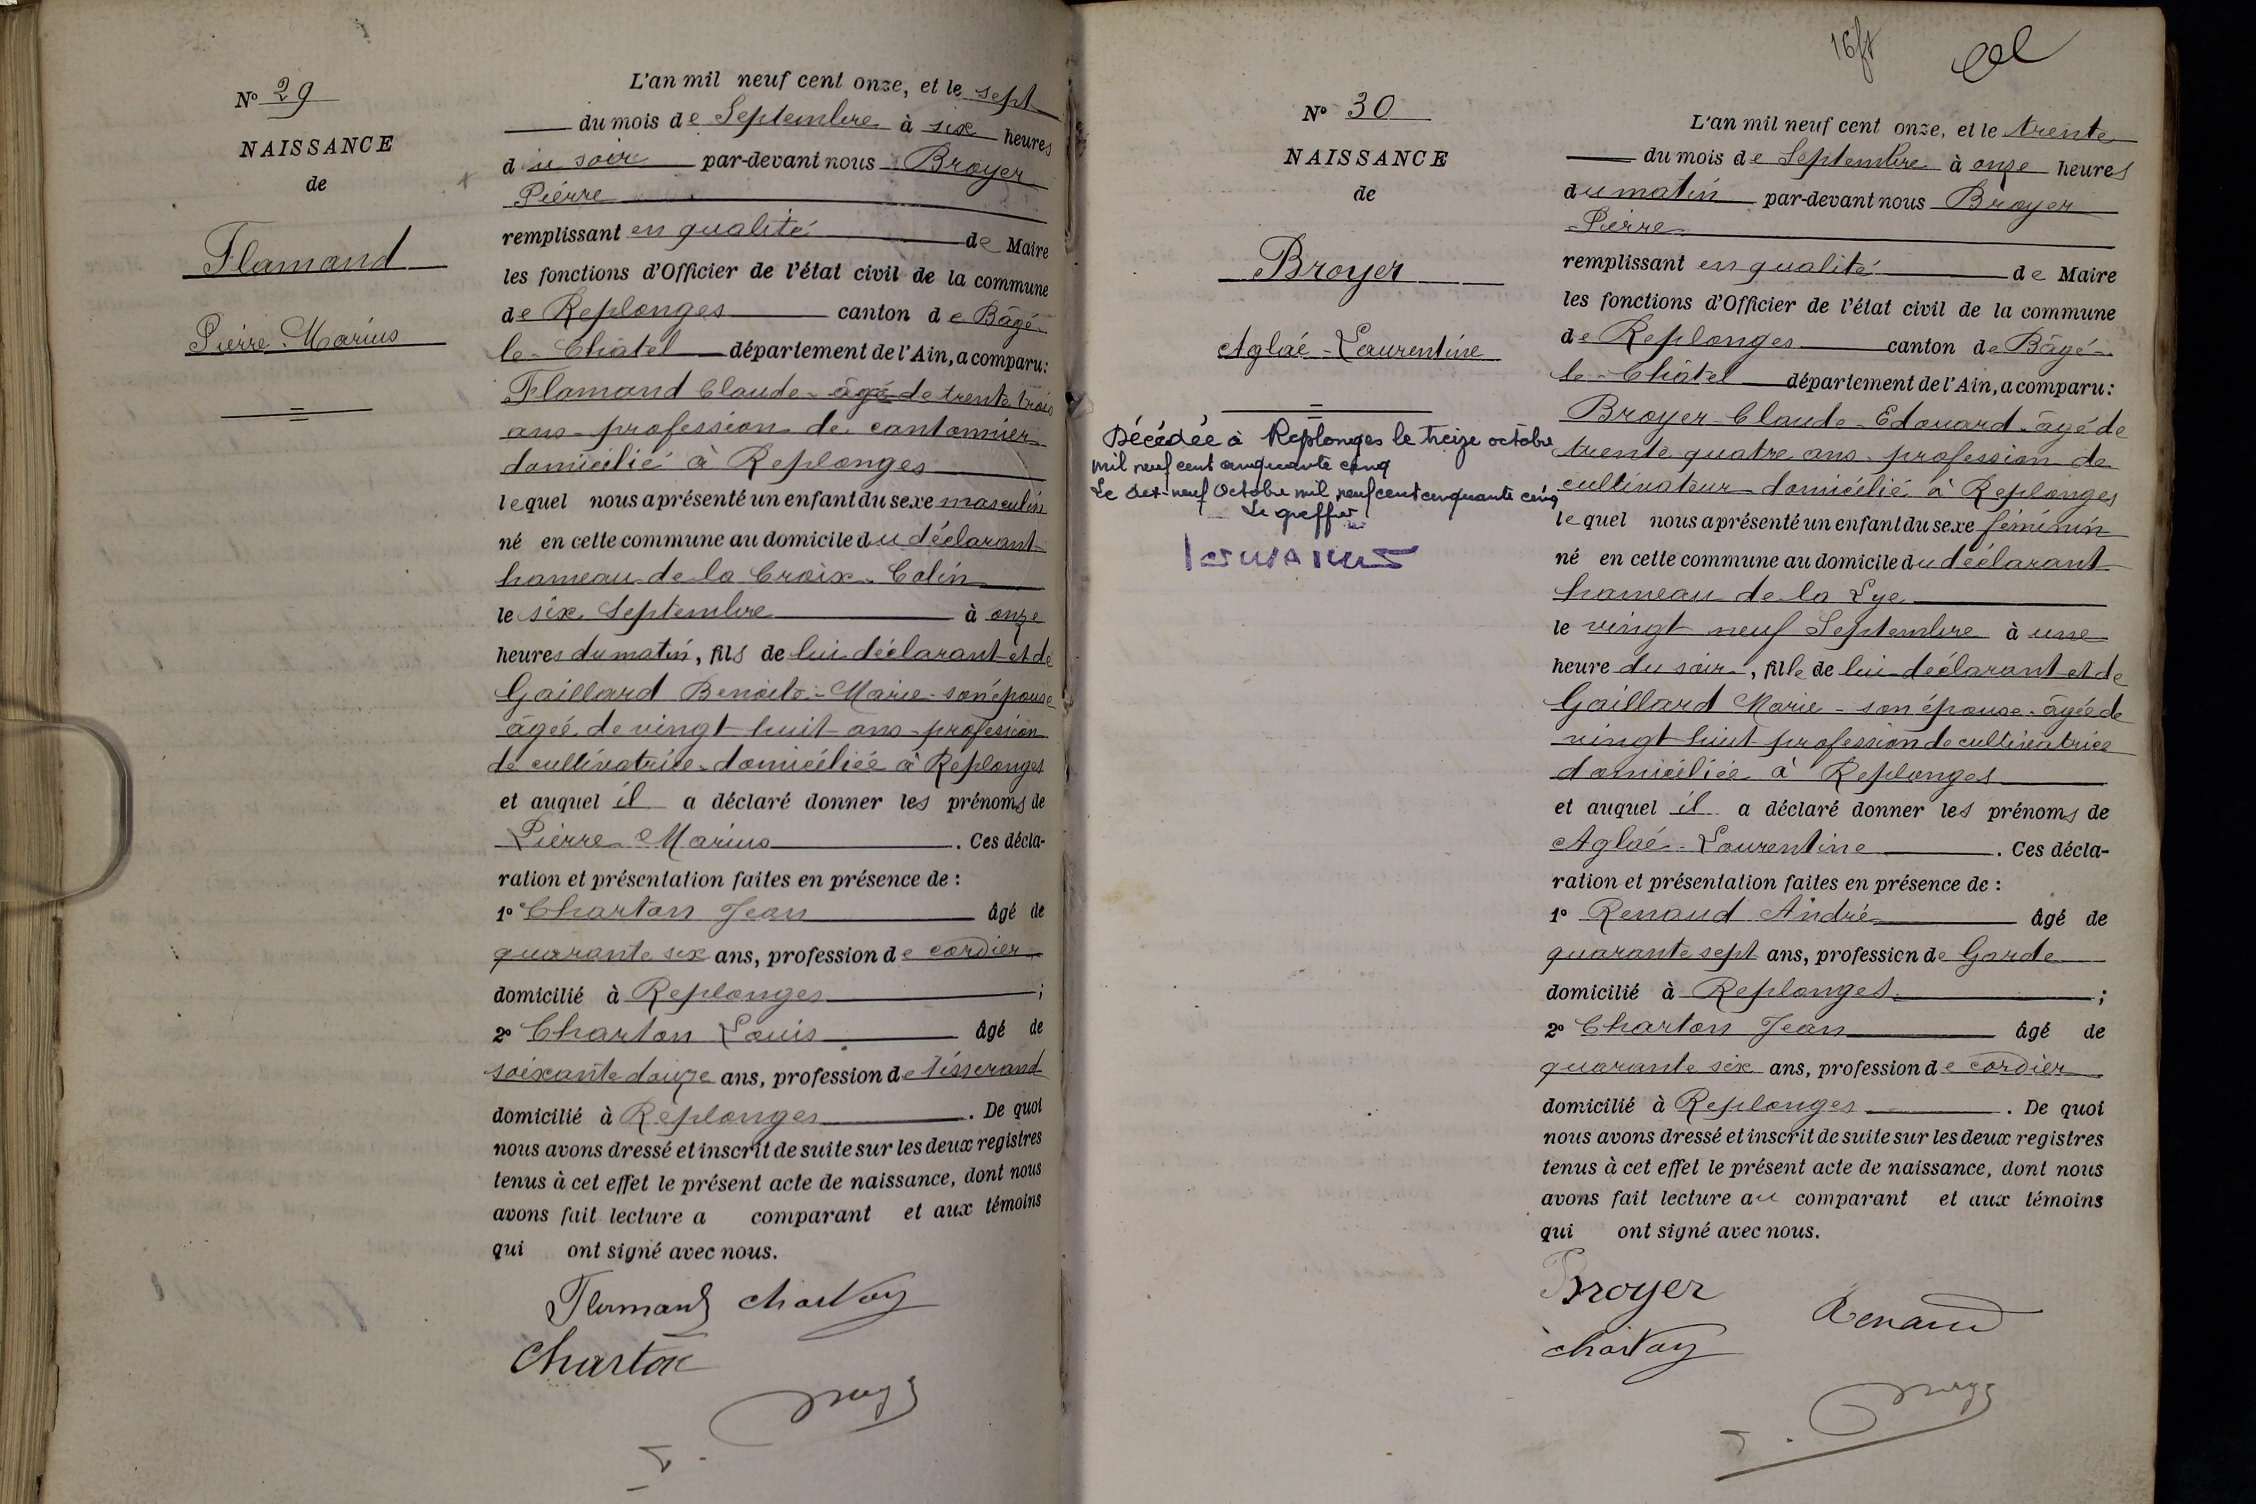 N° 29
NAISSANCE
de
Flamand
Pierre Marius
L'an mil neuf cent onze, et le sept
du mois de Septembre à six heures
du soir par-devant nous Broyer
Pierre
remplissant en qualité de Maire
les fonctions d'Officier de l'état civil de la commune
de Replonges canton de Bâgé-
le-Châtel département de l'Ain, a comparu:
Flamand Claude - âgé de trente trois
ans - profession de cantonnier
domicilié à Replonges
lequel nous a présenté un enfant du sexe masculin
né en cette commune au domicile du déclarant
hameau de la Croix-Colin
le six Septembre à onze
heures du matin, fils de lui déclarant et de
Gaillard Benoite-Marie - son épouse
âgée de vingt huit ans - profession
de cultivatrice - domiciliée à Replonges
et auquel il a déclaré donner les prénoms de
Pierre Marius. Ces décla-
ration et présentation faites en présence de :
1° Charton Jean âgé de
quarante six ans, profession de cordier
domicilié à Replonges ;
2° Charton Louis âgé de
soixante douze ans, profession de tisserand
domicilié à Replonges. De quoi
nous avons dressé et inscrit de suite sur les deux registres
tenus à cet effet le présent acte de naissance, dont nous
avons fait lecture a comparant et aux témoins
qui ont signé avec nous.
Flamand Charton
Charton
16
N° 30
NAISSANCE
de
Broyer
Aglaé-Laurentine
Décédée à Replonges le treize octobre
mil neuf cent cinquante cinq
Le dix-neuf Octobre mil neuf cent cinquante cinq
Le greffier
L'an mil neuf cent onze, et le trente
du mois de Septembre à onze heures
du matin par-devant nous Broyer
Pierre
remplissant en qualité de Maire
les fonctions d'Officier de l'état civil de la commune
de Replonges canton de Bâgé-
le-Châtel département de l'Ain, a comparu:
Broyer Claude-Edouard - âgé de
trente quatre ans - profession de
cultivateur - domicilié à Replonges
lequel nous a présenté un enfant du sexe féminin
né en cette commune au domicile du déclarant
hameau de la Lye
le vingt neuf Septembre à une
heure du soir, fille de lui déclarant et de
Gaillard Marie - son épouse - âgée de
vingt huit profession de cultivatrice
domiciliée à Replonges
et auquel il a déclaré donner les prénoms de
Aglaé-Laurentine. Ces décla-
ration et présentation faites en présence de :
1° Renaud André âgé de
quarante sept ans, profession de Garde
domicilié à Replonges ;
2° Charton Jean âgé de
quarante six ans, profession de cordier
domicilié à Replonges. De quoi
nous avons dressé et inscrit de suite sur les deux registres
tenus à cet effet le présent acte de naissance, dont nous
avons fait lecture au comparant et aux témoins
qui ont signé avec nous.
Broyer
Renaud
Charton